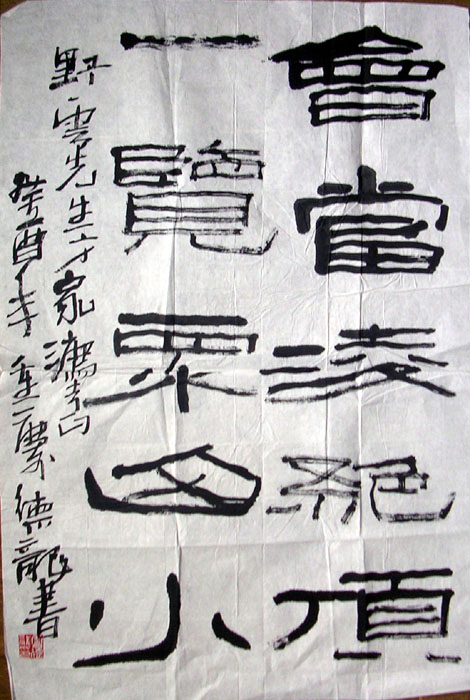 會當凌絕頂
一覽眾山小
野雲先生方家
癸酉年重慶德龍書